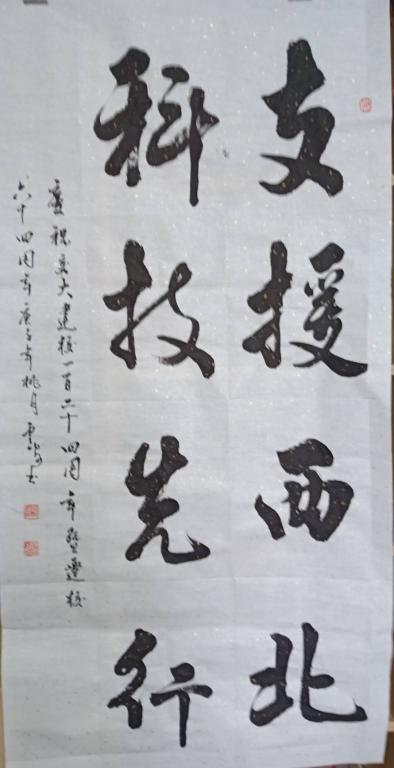 支援西北
科技先行
庆祝交大建校一百二十四周年暨迁校
六十四周年庚子年桃月